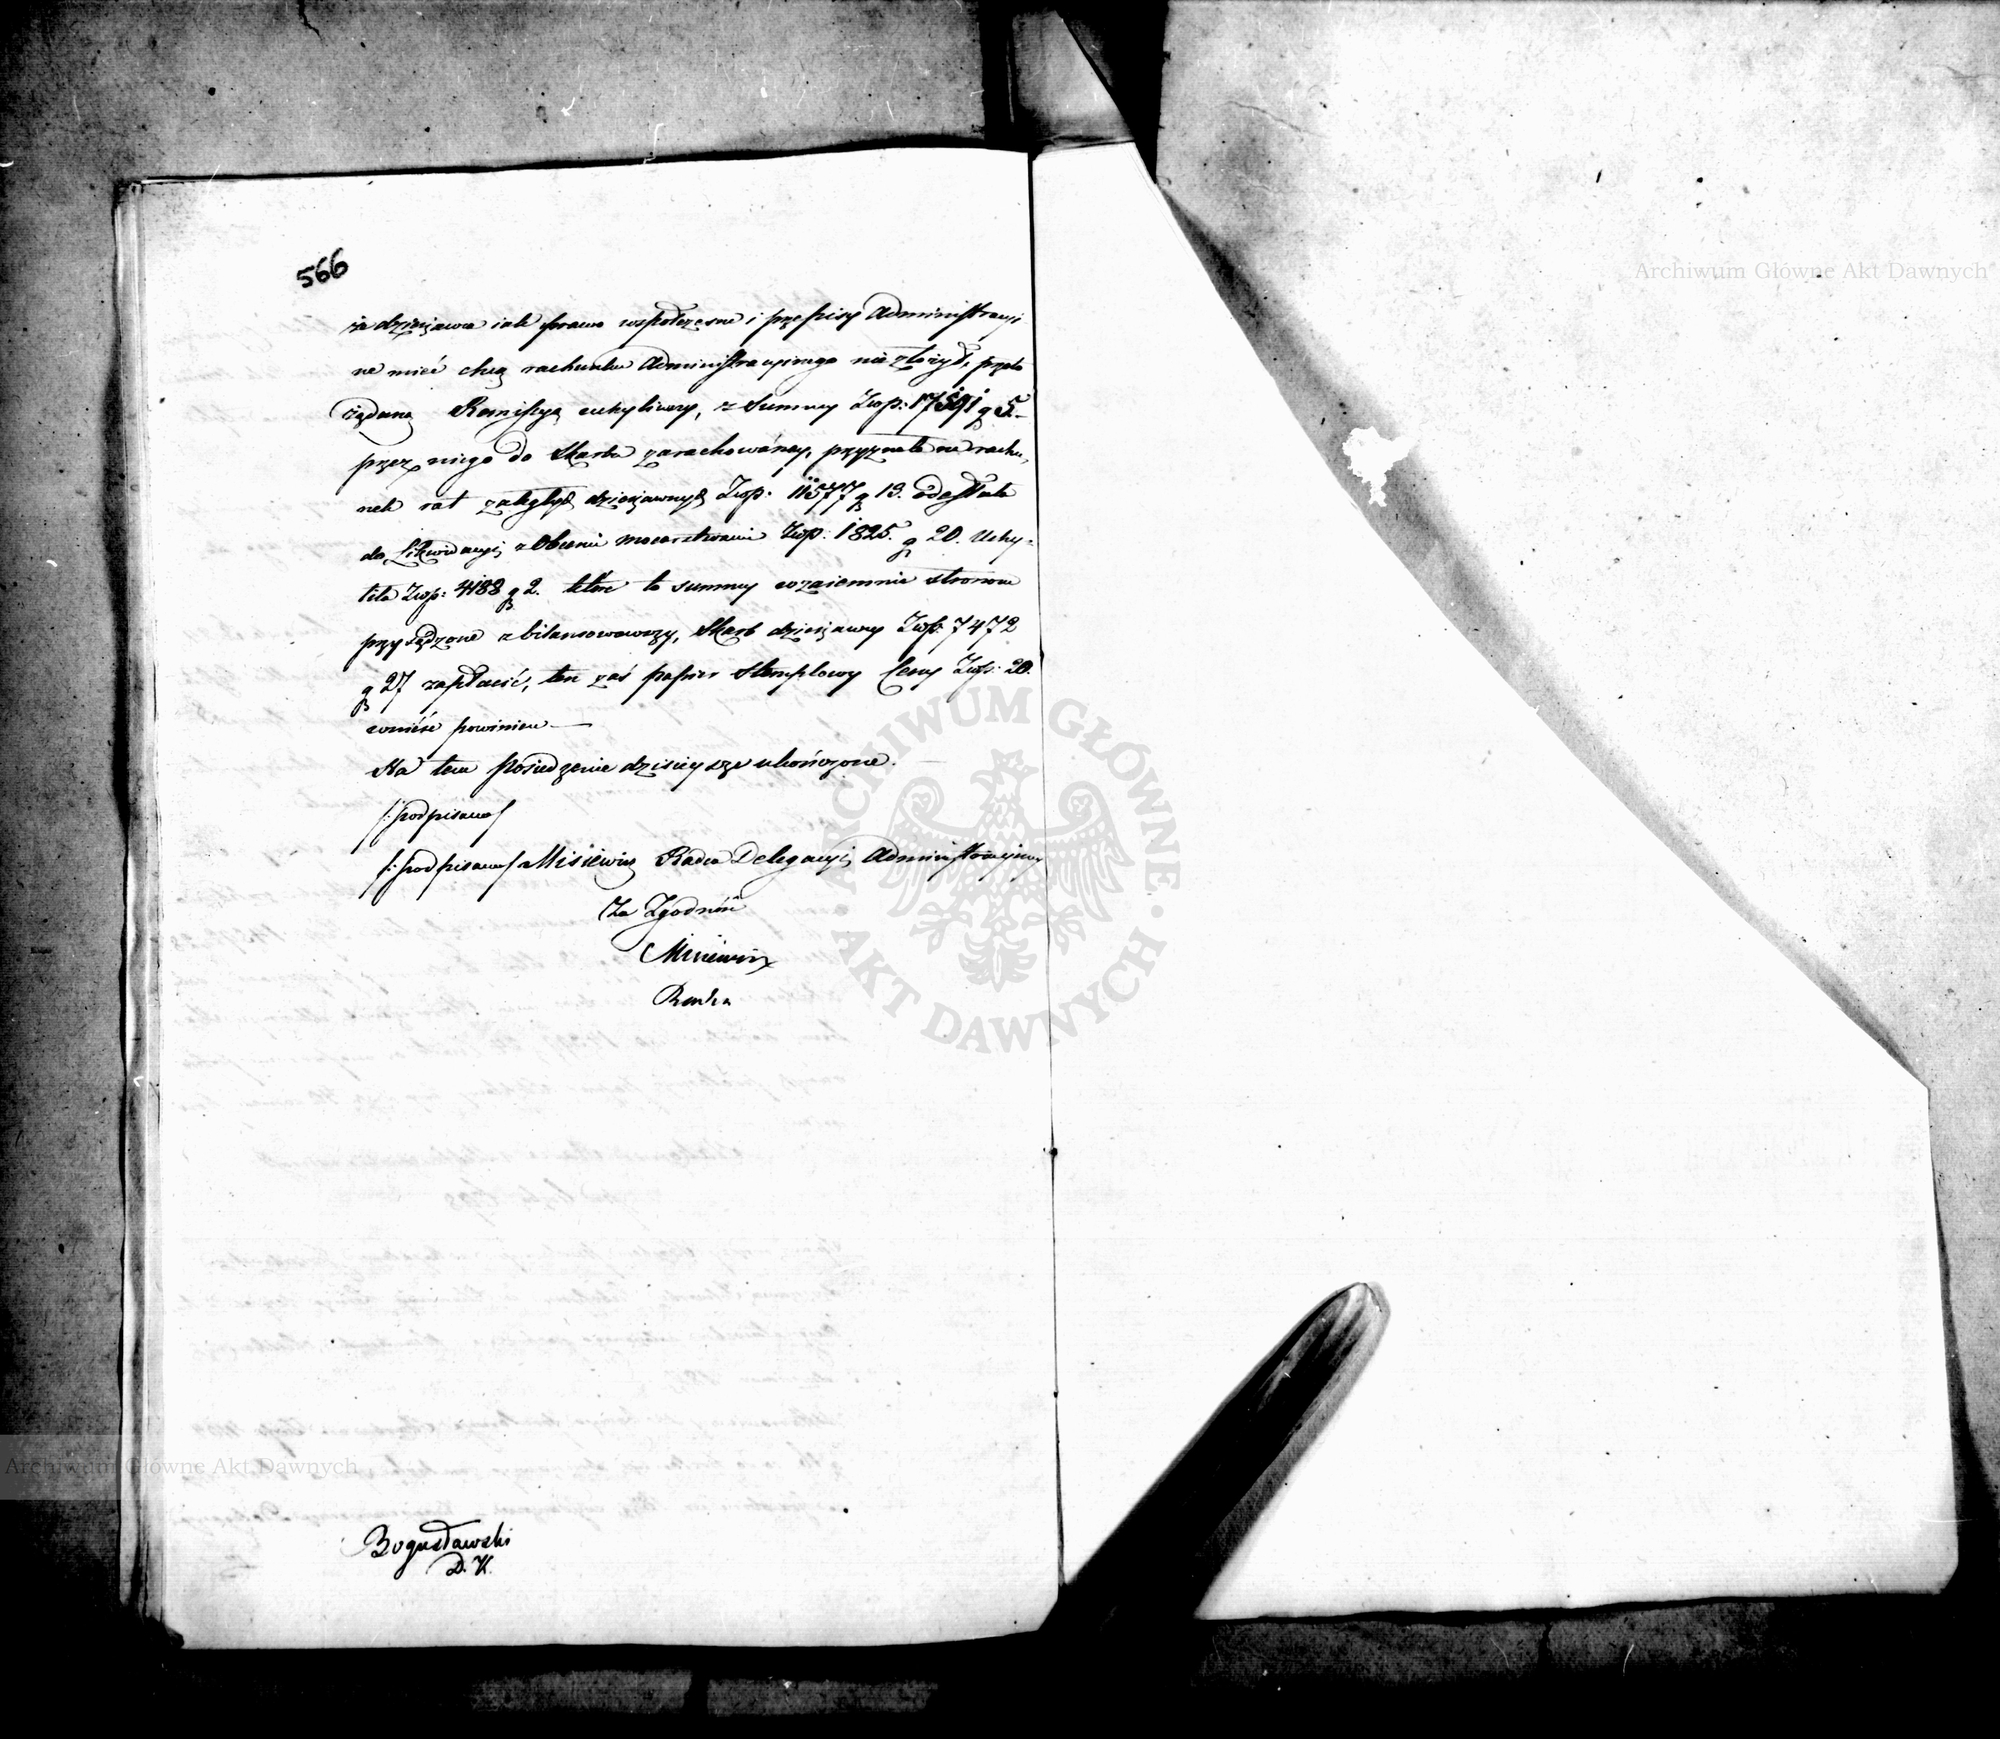 566
że dzierżawca iak prawa współczesne i przepisy Administracyi
ne mieć chcą rachunku Administracyinego nie złożył, przeto
żądaną Remissyą uchyliwszy, z Summy Zwp: 17591 g 5.
przez niego do Skarbu zarachowaney, przyznała na rachu,
nek rat zaległych dzierżawnych Zwp: 11577 g 13. odesłała
do Likwidacyi z Obcemi mocarstwami Zwp: 1825. g 20. Uchy-
liła Zwp: 4188 g 2. które to summy wzaiemnie stronom
przysądzone zbilansowawszy, Skarb dzierżawcy Zwp: 7472
g 27 zapłacić, ten zaś papier Stemplowy Ceny Zwp: 20.
wnieść powinien —
Na tem posiedzenie dzisieysze ukończone.
/: podpisano/
/: podpisano/ Misiewicz Radca Delegacyi Administracyiney
Za Zgodność
Misiewicz
Radca
Bogusławski
D. K.
Archiwum Główne Akt Dawnych
Archiwum Główne Akt Dawnych
ARCHIWUM GŁÓWNE AKT DAWNYCH